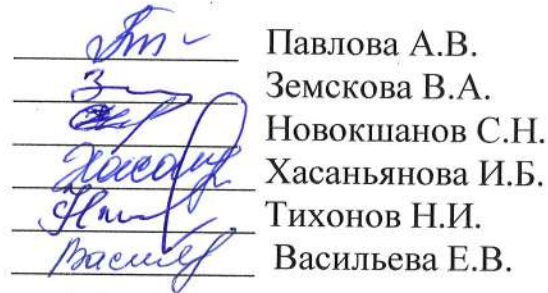 Павлова А.В.
Земскова В.А.
Новокшанов С.Н.
Хасаньянова И.Б.
Тихонов Н.И.
Васильева Е.В.